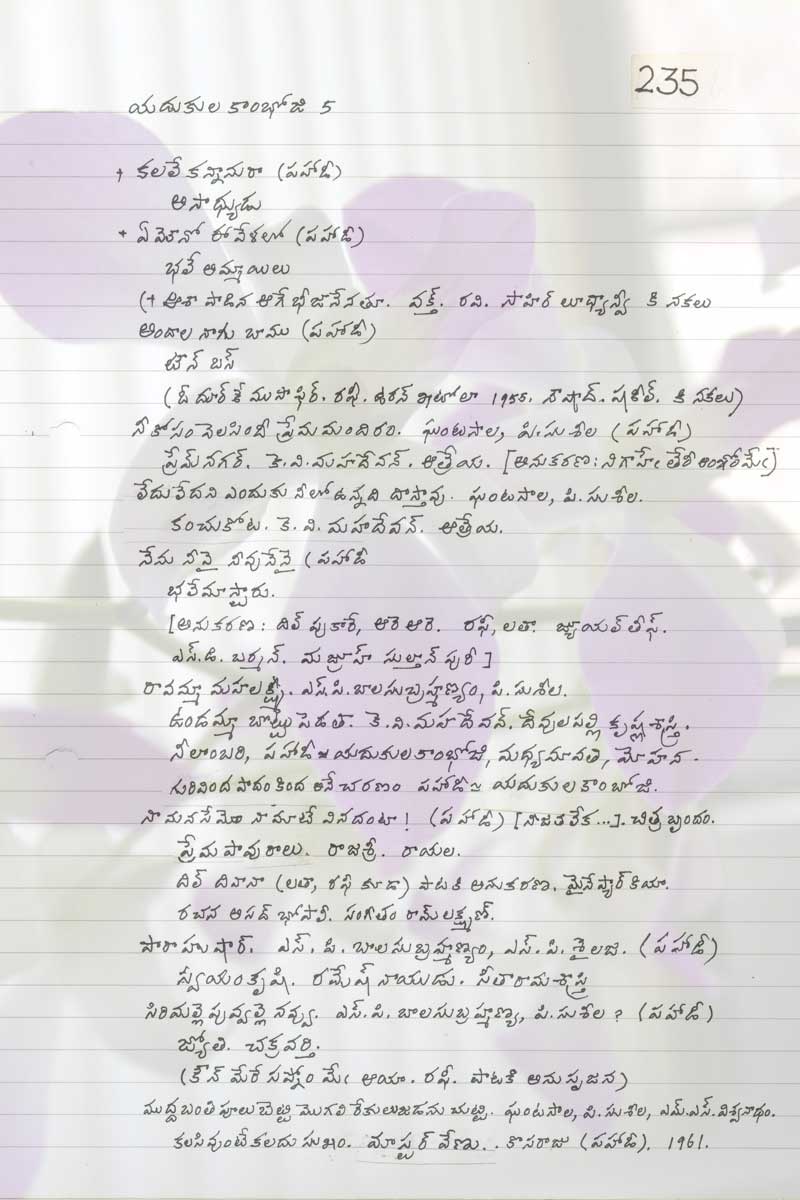 235
యదుకుల కాంభోజి 5
+ కలలే కన్నానురా (పహాడీ)
అసాధ్యుడు
* ఏమౌనో ఈ వేళలో (పహాడీ)
భలే అమ్మాయిలు
(+ ఆశా పాడిన ఆగే భీ జానేనతూ. వక్త్. రవి. సాహిర్ లూధ్యాన్వీ కి నకలు
అందాల నాగు బాము (పహాడీ)
టౌన్ బస్
(ఓ దూర్ కే ముసాఫిర్. రఫీ. ఉరన్ ఖటోలా 1955. నౌషాద్. షకీల్. కి నకలు)
నీ కోసం వెలసింది ప్రేమమందిరం. ఘంటసాల, పి.సుశీల (పహాడీ)
ప్రేమ్ నగర్. కె.వి.మహదేవన్. ఆత్రేయ. [అనుకరణ: నిగాహేఁ తేరీ అంఖోమేఁ]
లేదులేదని ఎందుకు నీలో ఉన్నది దాస్తావు. ఘంటసాల, పి.సుశీల.
కంచుకోట. కె.వి.మహదేవన్. ఆత్రేయ.
నేను నీవై నీవునేనై (పహాడీ
భలేమాస్టారు.
[అనుకరణ: దిల్ పుకారే, ఆరె ఆరె. రఫీ, లతా. జ్యుయల్ తీఫ్.
ఎస్.డి. బర్మన్. మజ్రూహ్ సుల్తాన్ పురీ]
రావమ్మా మహలక్ష్మీ. ఎస్.పి.బాలసుబ్రహ్మణ్యం, పి.సుశీల.
ఉండమ్మా బొట్టు పెడతా. కె.వి.మహదేవన్. దేవులపల్లి కృష్ణశాస్త్రి.
నీలాంబరి, పహాడీ ≃ యదుకులకాంభోజి, మధ్యమావతి, మోహన.
గురివింద పొదం కింద అనే చరణం పహాడీ ≃ యదుకులకాంభోజి.
నా మనసేమో నా మాటే వినదంటా! (పహాడీ) [నీజతలేక...]. చిత్ర బృందం.
ప్రేమ పావురాలు. రాజశ్రీ. రాయల.
దిల్ దివానా (లతా, రఫి కూడా) పాటకి అనుకరణ. మైనే ప్యార్ కియా.
రచన అసద్ భోపాలీ. సంగీతం రామ్ లక్ష్మణ్.
పారాహుషార్. ఎస్.పి.బాలసుబ్రహ్మణ్యం, ఎస్.పి.శైలజ. (పహాడీ)
స్వయంకృషి. రమేష్ నాయుడు. సీతారామశాస్త్రి
సిరిమల్లె పువ్వల్లె నవ్వు. ఎస్.పి.బాలసుబ్రహ్మణ్య, పి.సుశీల? (పహాడీ)
జ్యోతి. చక్రవర్తి.
(కౌన్ మేరే సప్నోం మేఁ ఆయా. రఫీ. పాటకి అనుసృజన)
ముద్దబంతి పూలు బెట్టి మొగలి రేకులు జడను చుట్టి. ఘంటసాల, పి.సుశీల, ఎమ్.ఎస్.విశ్వనాథం.
కలసివుంటే కలదు సుఖం. మాస్టర్ వేణు. కొసరాజు (పహాడీ). 1961.